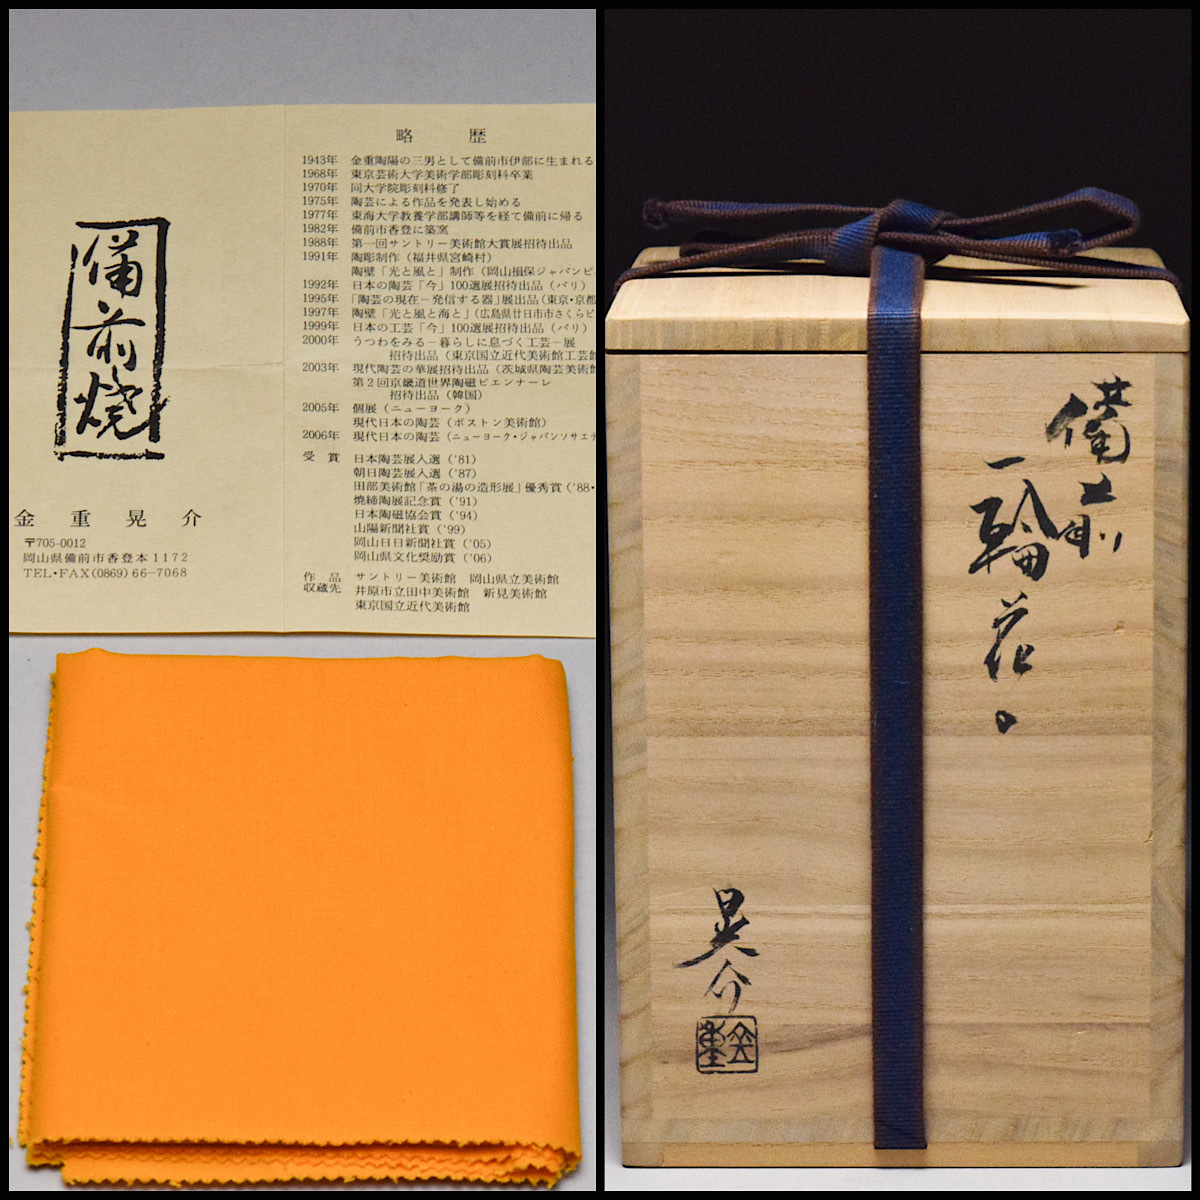 備前焼
金重晃介
〒705-0012
岡山県備前市香登本1172
TEL・FAX(0869)66-7068
略歴
1943年 金重陶陽の三男として備前市伊部に生まれる
1968年 東京芸術大学美術学部彫刻科卒業
1970年 同大学院彫刻科修了
1975年 陶芸による作品を発表し始める
1977年 東海大学教養学部講師等を経て備前に帰る
1982年 備前市香登に築窯
1988年 第一回サントリー美術館大賞展招待出品
1991年 陶彫制作（福井県宮崎村）
陶壁「光と風と」制作（岡山損保ジャパンビ
1992年 日本の陶芸「今」100選展招待出品（パリ）
1995年 「陶芸の現在－発信する器」展出品（東京・京都
1997年 陶壁「光と風と海と」（広島県廿日市市さくらピ
1999年 日本の工芸「今」100選展招待出品（パリ）
2000年 うつわをみる－暮らしに息づく工芸－展
招待出品（東京国立近代美術館工芸館
2003年 現代陶芸の華展招待出品（茨城県陶芸美術館
第2回京畿道世界陶磁ビエンナーレ
招待出品（韓国）
2005年 個展（ニューヨーク）
現代日本の陶芸（ボストン美術館）
2006年 現代日本の陶芸（ニューヨーク・ジャパンソサエテ
受賞 日本陶芸展入選（'81）
朝日陶芸展入選（'87）
田部美術館「茶の湯の造形展」優秀賞（'88・
焼締陶展記念賞（'91）
日本陶磁協会賞（'94）
山陽新聞社賞（'99）
岡山日日新聞社賞（'05）
岡山県文化奨励賞（'06）
作品 サントリー美術館 岡山県立美術館
収蔵先 井原市立田中美術館 新見美術館
東京国立近代美術館
備前
一輪花入
晃介
金重